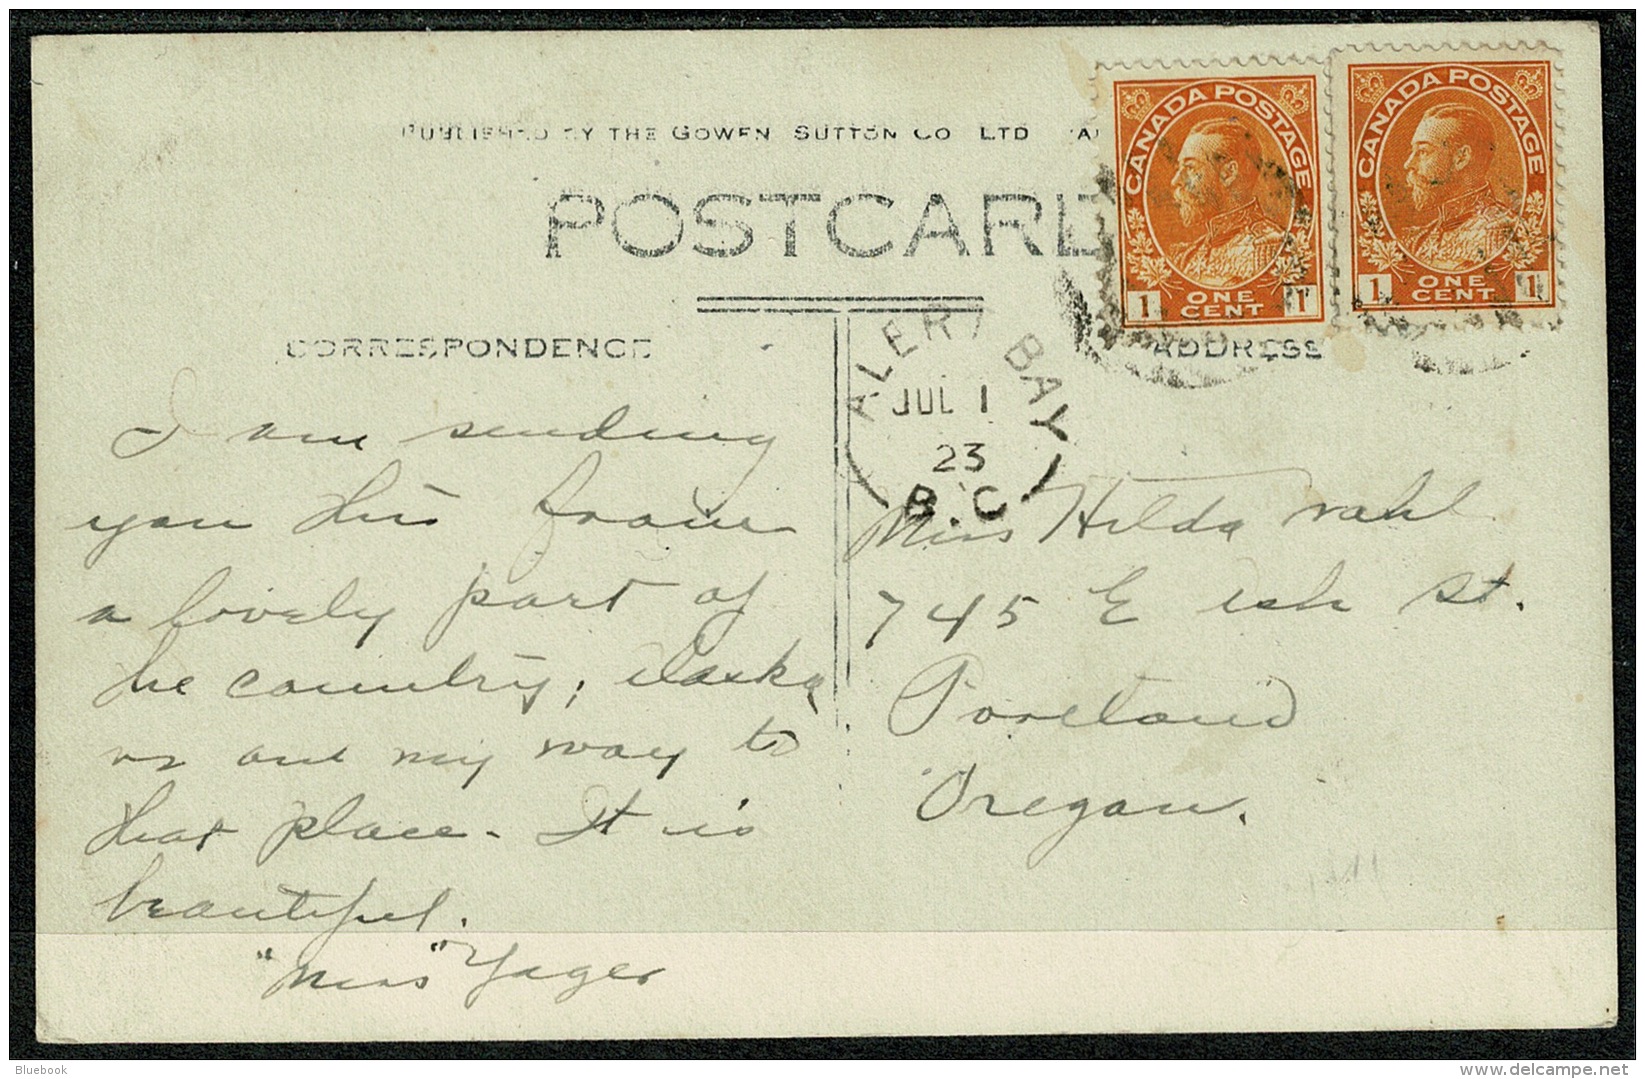 PUBLISHED BY THE GOWEN SUTTON CO LTD
POSTCARD
CORRESPONDENCE
ADDRESS
CANADA POSTAGE
1 ONE CENT 1
CANADA POSTAGE
1 ONE CENT 1
ALERT BAY
JUL 1
23
B.C.
I am sending
you this from
a lovely part of
the country; Alaska
or on my way to
that place. It is
beautiful.
"Miss" Yager
Miss Hilda Wahl
745 E Ash St.
Portland
Oregon.
Bluebook
delcampe.net